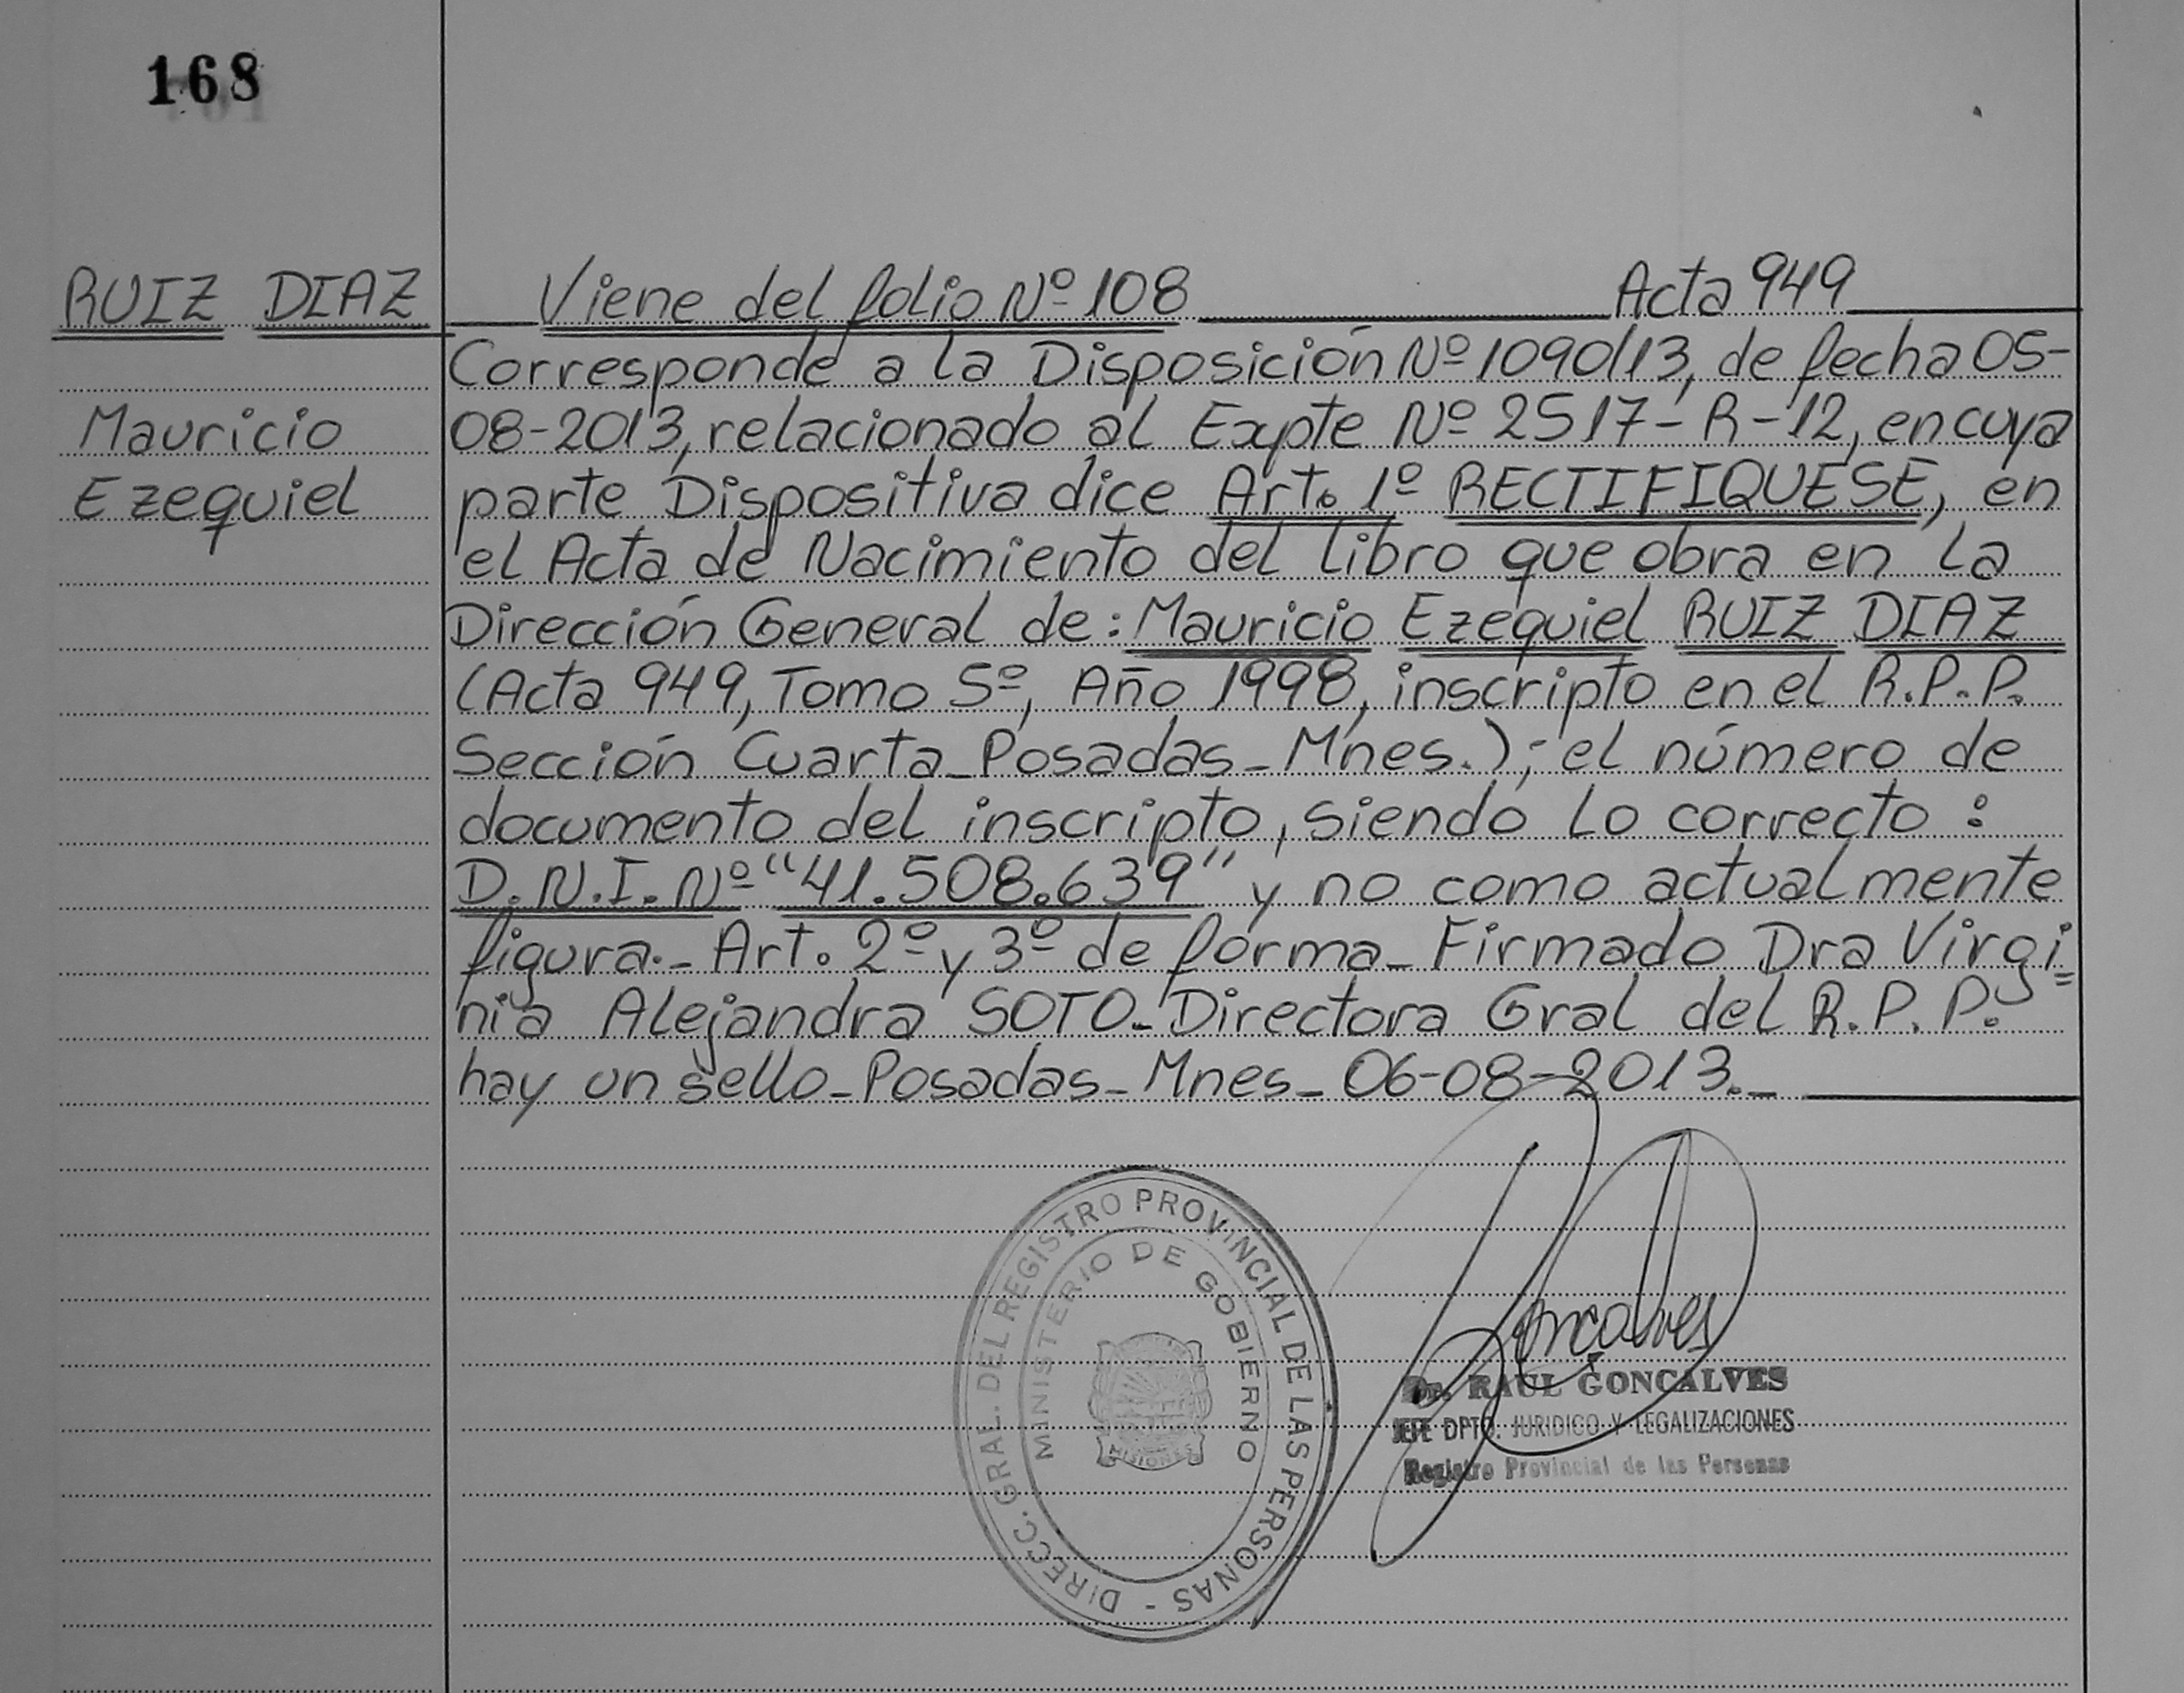 168
RUIZ DIAZ
Mauricio
Ezequiel
Viene del folio Nº 108 Acta 949
Corresponde a la Disposición Nº 1090/13, de fecha 05-
08-2013, relacionado al Expte Nº 2517-R-12, en cuya
parte Dispositiva dice Art. 1º RECTIFIQUESE, en
el Acta de Nacimiento del libro que obra en la
Dirección General de: Mauricio Ezequiel RUIZ DIAZ
(Acta 949, Tomo 5º, Año 1998, inscripto en el R.P.P.
Sección Cuarta_Posadas_Mnes.); el número de
documento del inscripto, siendo lo correcto:
D.N.I. Nº "41.508.639" y no como actualmente
figura._Art. 2º y 3º de forma_Firmado Dra Virgi=
nia Alejandra SOTO_Directora Gral del R.P.P.
hay un sello_Posadas_Mnes_06-08-2013._
DIRECC. GRAL. DEL REGISTRO PROVINCIAL DE LAS PERSONAS -
MINISTERIO DE GOBIERNO
MISIONES
Goncalves
Dr. RAUL GONCALVES
JEFE DPTO. JURIDICO Y LEGALIZACIONES
Registro Provincial de las Personas